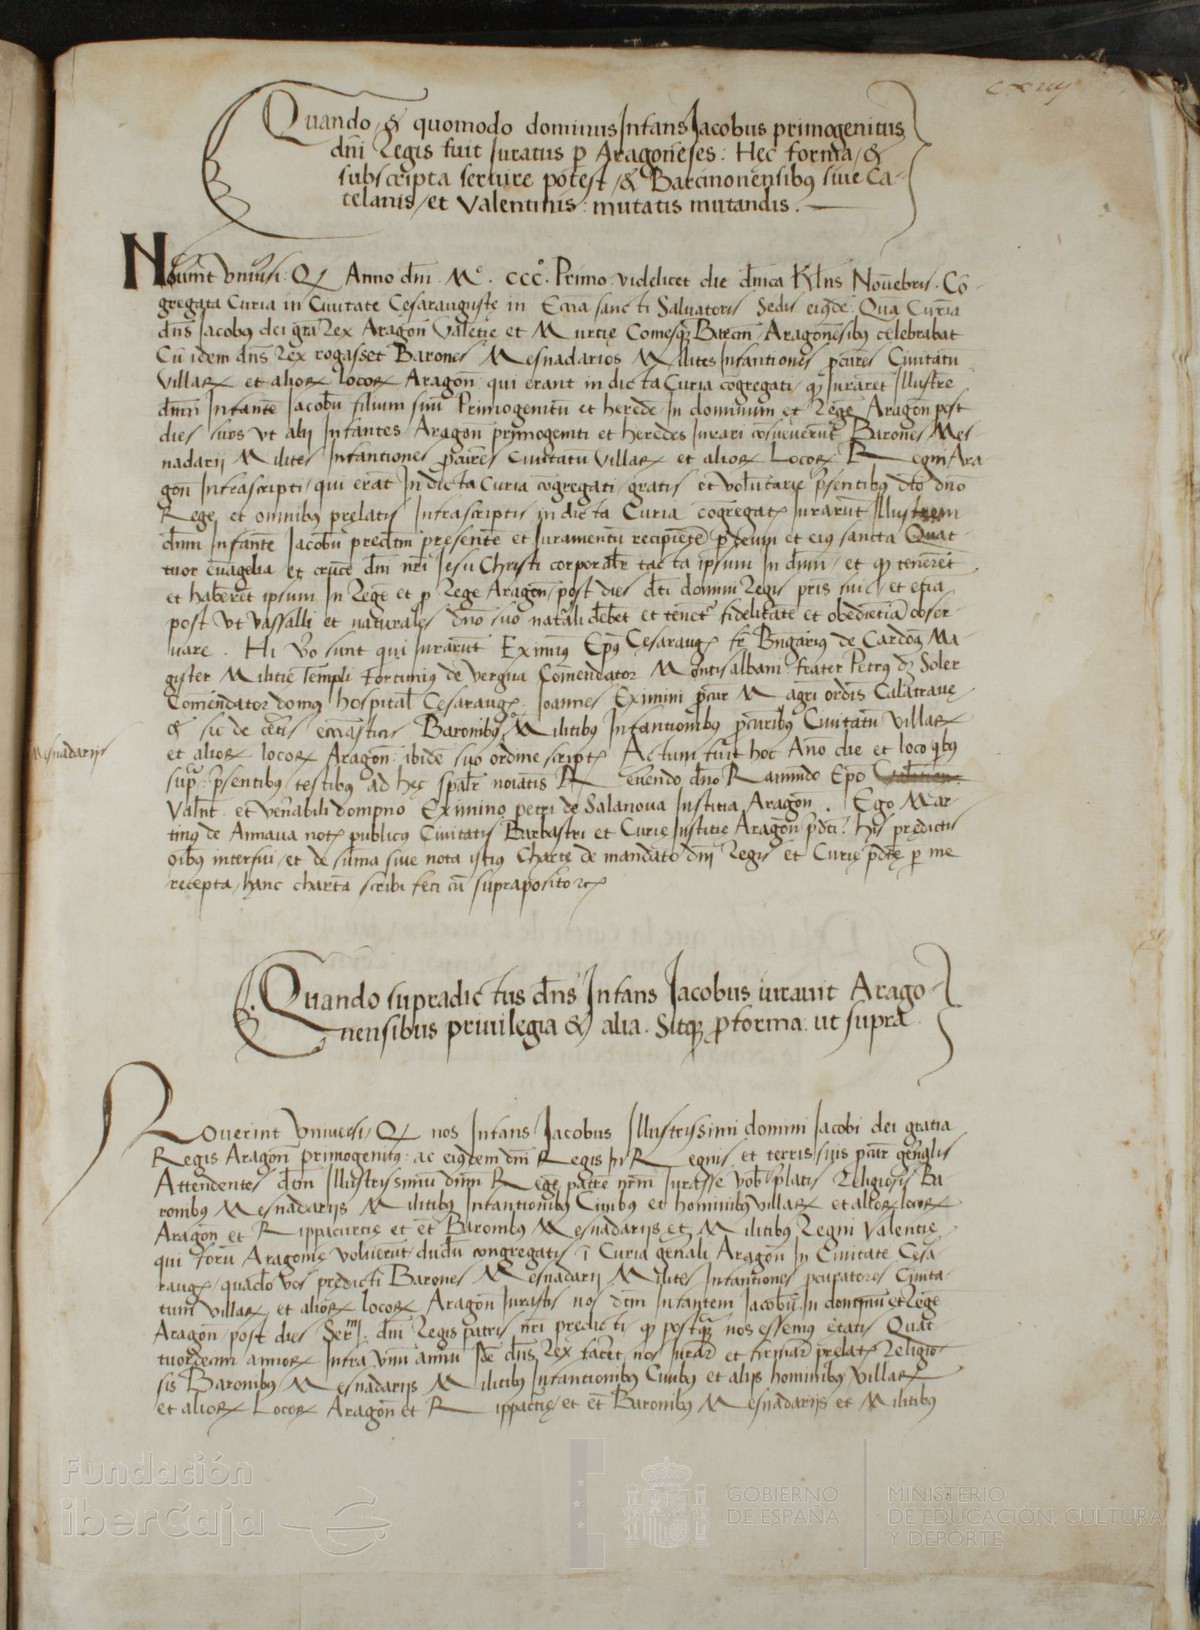 cxiiij
Quando / & quomodo dominus Infans Jacobus primogenitus
dn̄i Regis fuit juratus p Aragoneses: Hec forma / &
subscripta seruire potest / & Barcinonensibus siue Ca-
telanis / et Valentinis: mutatis mutandis.
Nouerint Vniuersi: Q Anno dn̄i. Mº. CCCº. Primo: videlicet die dn̄ica Kl̄ns Nouēbris. Cō-
gregata Curia in Ciuitate Cesarauguste in Ecc̄ia sancti Saluatoris Sedis eiusdē: Quā Curiā
dn̄s Jacobus dei gr̄a Rex Aragon̄ Valētie et Murcie Comesq; Barcn̄ Aragonēsibus celebrabat
Cū idem dn̄s Rex rogasset Barones Mesnadarios Milites Infantiones p̄cures Ciuitatū
Villarꝝ et aliorꝝ locorꝝ Aragon̄: qui erant in dicta Curia cōgregati / q̄ Jurarēt Illustrē
dn̄m Infantē Jacobū filium suū Primogenitū et heredē In dominum et Regē Aragon̄ post
dies suos vt alij Infantes Aragon̄ primogeniti et heredes Jurari cōsueuerūt Barones Mes-
nadarij Milites Infantiones p̄cures Ciuitatū Villarꝝ et aliorꝝ Locorꝝ Regni Ara
gon̄ Infrascripti / qui erāt In dicta Curia cōgregati / gratis et volūtarie p̄sentibus dc̄o dn̄o
Rege et omnibus prelatis Infrascriptis in dicta Curia cōgregatis Jurarūt Illustrem
dn̄m Infantē Jacobū predc̄m presentē et Juramentū recipiētē p deum et eius sancta Quat-
tuor euāgelia et crucē dn̄i nr̄i Jesu Christi corporal̄r tacta ipsum In dn̄m / et q̄ tenerēt
et haberēt ipsum In Regē et p Rege Aragon̄ / post dies dc̄i domini Regis pr̄is sui / et etiā
post vt vassalli et naturales dn̄o suo nat̄ali debēt et tenēt fidelitatē et obediētiā obser-
uare. Hi v̄o sunt qui jurarūt Eximius Ep̄us Cesarauḡ fr̄ Bn̄garius de Cardoā Ma-
gister Militie Tēmpli Fortunius de Vergua Comēdator Montisalbani frater Petrus dȝ Soler
Comēdator domus hospital̄ Cesarauḡ Joannes Eximini p̄cur Magr̄i ordīs Calatraue
& sic de cet̄is ecc̄asticis Baronibus Militibus Infantionibus p̄curibus Ciuitatū Villarꝝ
Mesnadarijs
et aliorꝝ locorꝝ Aragon̄: ibidē suo ordine script̄ Actum fuit hoc Anō die et loco qbus
sup̄ p̄sentibus testibus ad hec spāl̄r noiatis Reuerendo dn̄o Raimūdo Epō
Valn̄t. et ven̄abili dompno Eximino petri de Salanoua Justitia Aragon̄. Ego Mar-
tinus de Annaua not̄ publicus Ciuitatis Barbastri et Curie Justitie Aragon̄ p̄dc̄i: his predictis
oībus interfui / et de sūma siue nota istius Charte de mandato dn̄i Regis et Curie p̄dc̄e p me
recepta / hanc chartā scribi feci cū suprapositorꝝ
Quando supradictus dn̄s Infans Jacobus iurauit Arago-
nensibus priuilegia & alia. Sitq; p forma: ut supra
Nouerint Vniuersi / Q nos Infans Jacobus Illustrissimi domini Jacobi dei gratia
Regis Aragon̄ primogenitus: ac eiusdem dn̄i Regis In Regnis et terris suis p̄cur gn̄ālis
Attendentes dc̄m Illustrissimū dn̄m Regē patrē nr̄m Jurasse vob̄ p̄latis Religiosis Ba-
ronibus Mesnadarijs Militibus Infantionibus Ciuibus et hominibus villarꝝ et aliorꝝ locorꝝ
Aragon̄ et Rippacurtie et ēt Baronibus Mesnadarijs et Militibus Regni Valentie
qui forū Aragonie voluerūt / dudū congregatis ī Curia gen̄ali Aragon̄ In Ciuitate Cesa-
rauḡ / quādo vos predicti Barones Mesnadarij Milites Infantiones p̄curatores Ciuita-
tum Villarꝝ et aliorꝝ locorꝝ Aragon̄ Jurastis nos dc̄m Infantem Jacobū In dominū et Regē
Aragon̄ post dies Ser.mi dn̄i Regis patris nr̄i predicti q̄ postq̄ nos essemus etatis Quat
tuordecim annorꝝ Intra vnū annū Idē dn̄s Rex facēt nos Jurar̄ et firmar̄ prelatis Religio-
sis Baronibus Mesnadarijs Militibus Infantionibus Ciuibus et alijs hominibus Villarꝝ
et aliorꝝ Locorꝝ Aragon̄ et Rippac̄tie / et ēt Baronibus Mesnadarijs et Militibus
Fundación
iberCaja
GOBIERNO
DE ESPAÑA
MINISTERIO
DE EDUCACIÓN, CULTURA
Y DEPORTE